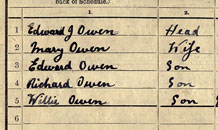 back of Schedule.)
1. 2.
1 Edward J Owen Head
2 Mary Owen Wife
3 Edward Owen Son
4 Richard Owen Son
5 Willie Owen Son
6